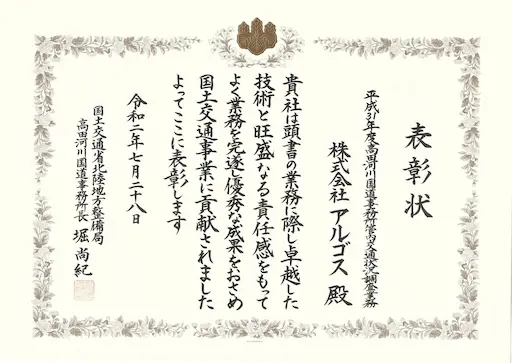 表彰状
平成31年度高田河川国道事務所管内交通状況調査業務
株式会社アルゴス殿
貴社は頭書の業務に際し卓越した
技術と旺盛なる責任感をもって
よく業務を完遂し優秀な成果をおさめ
国土交通事業に貢献されました
よってここに表彰します
令和二年七月二十八日
国土交通省北陸地方整備局
高田河川国道事務所長 堀尚紀